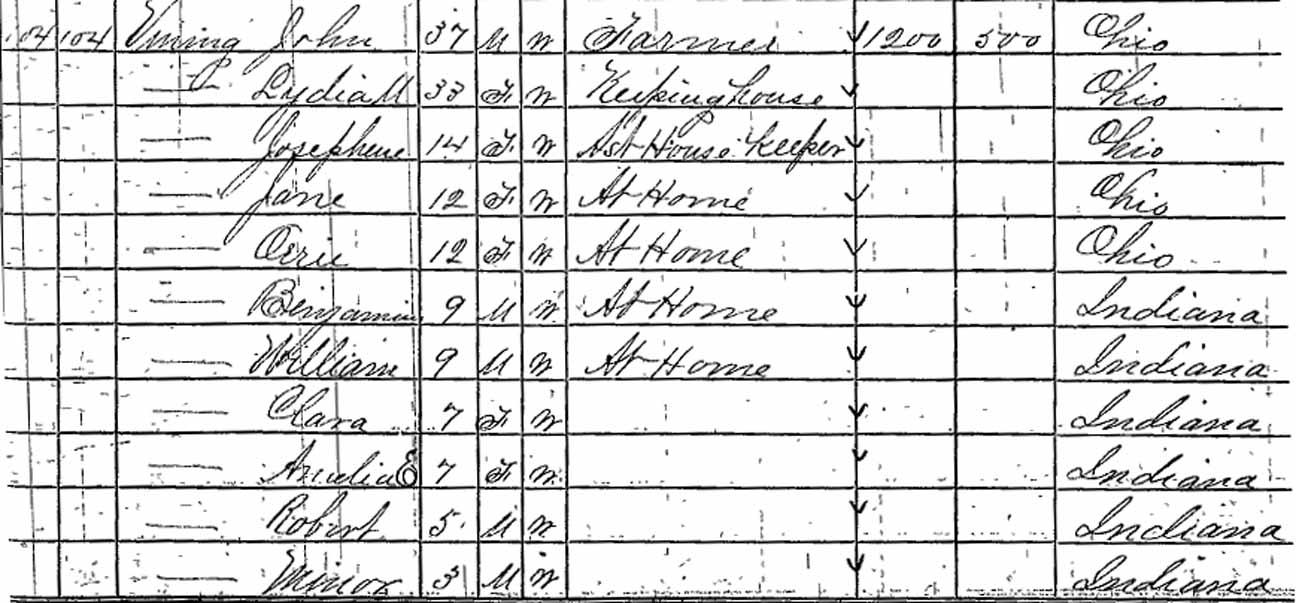 104 104 Vining John 37 M W Farmer 1200 500 Ohio
— Lydia M 33 F W Keeping house Ohio
— Josephine 14 F W Ast House Keeper Ohio
— Jane 12 F W At Home Ohio
— Orrie 12 F W At Home Ohio
— Benjamin 9 M W At Home Indiana
— William 9 M W At Home Indiana
— Clara 7 F W Indiana
— Amelia E 7 F W Indiana
— Robert 5 M W Indiana
— Minor 3 M W Indiana